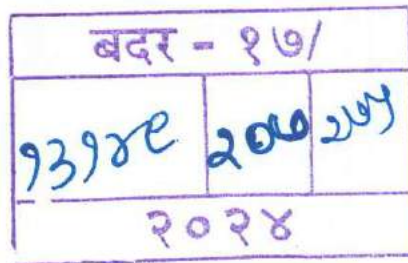 बदर - १७/
१३१४९ २०७ २७५
२०२४